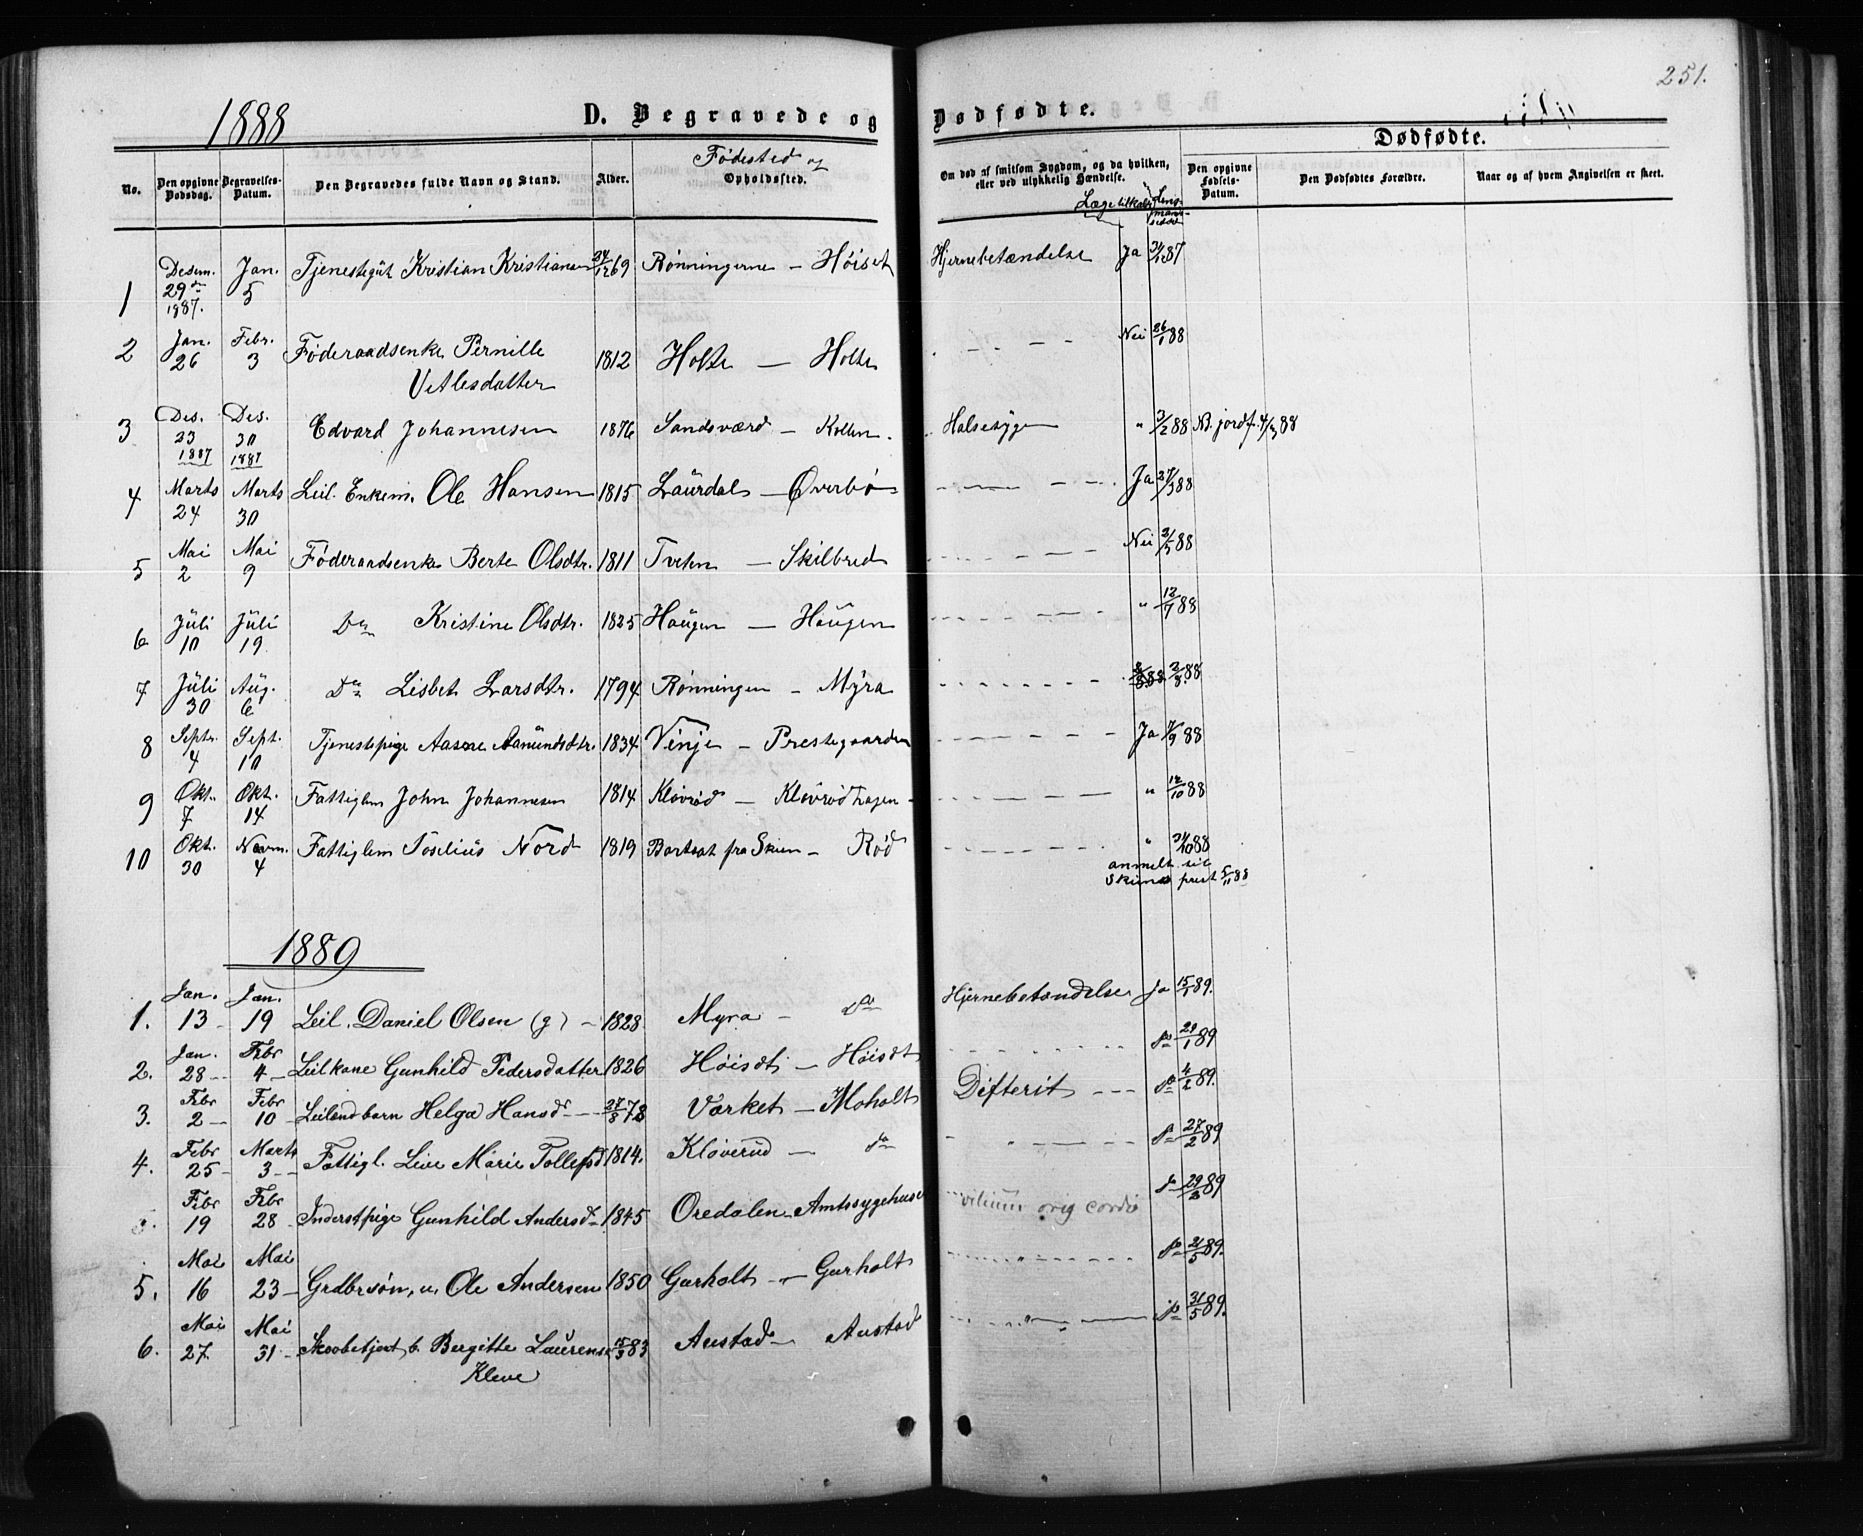 251.
1888 D. Begravede og Dødfødte.
Dødfødte.
No. Den opgivne Dødsdag. Begravelses-Datum. Den Begravedes fulde Navn og Stand. Alder. Fødested og Opholdssted. Om død af smitsom Sygdom, og da hvilken, eller ved ulykkelig Hændelse. Den opgivne Fødsels-Datum. Den Dødfødtes Forældre. Naar og af hvem Angivelsen er skeet.
Læge tilkaldt
1 Desem. 29de 1887. Jan. 5 Tjenestegut Kristian Kristiansen 24/12 69 Rønningerne – Høiset Hjernebetændelse Ja 87
2 Jan. 26 Febr. 3 Føderaadsenke Pernille 1812 Holte – Holte Nei 26/1 88
Vetlesdatter
3 Des. 23 1887 Des. 30 1887 Edvard Johannesen 1876 Sandsværd – Kollen. Halsesyge " 3/2 88 NB. jordf. 4/3 88
4 Marts 24 Marts 30 Leil. Enkem. Ole Hansen 1815 Laurdal – Øverbø Ja 27/3 88
5 Mai 2 Mai 9 Føderaadsenke Berte Olsdtr. 1811 Tveten – Skilbred Nei 3/5 88
6 Juli 10 Juli 19 Do Kristine Olsdtr. 1825 Haugen – Haugen " 12/7 88
7 Juli 30 Aug. 6 Do Lisbet Larsdtr. 1794 Rønningen – Myra 2/8 88
8 Septr. 4 Sept. 10 Tjenestepige Aasne Aamundsdtr. 1834 Vinje – Prestegaarden Ja 7/9 88
9 Okt. 7 Okt. 14 Fattiglem John Johannesen 1814 Kløvrød – Kløvrødhagen " 12/10 88
10 Okt. 30 Novm. 4 Fattiglem Toselius Nord 1819 Bortsat fra Skien – Rød " 31/10 88
anmelt til
Skiens prest 5/11 88
1889
1. Jan. 13 Jan. 19 Leil. Daniel Olsen (g) – 1828 Myra – Do Hjernebetændelse Ja 15/1 89.
2. Jan. 28 Febr 4 Leilkone Gunhild Pedersdatter 1826 Høisdt – Høisdt Do 29/1 89
3. Febr 2 Febr 10 Leilendbarn Helga Hansdr 27/8 78 Værket – Moholt Difterit Do 4/2 89.
4. Febr 25 Marts 3 Fattigl. Live Marie Tollefsd 1814. Kløverud – do Do 27/2 89
Febr 19 Febr 28 Inderstpige Gunhild Andersdr 1845 Oredalen – Amtssygehuset vitium org cordis do 89
5. Mai 16 Mai 23 Grdbrsøn, u. Ole Andersen 1850 Gurholt – Gurholt do 21/5 89.
6. Mai 27 Mai 31 b. Bergitte Laurense 15/3 83 Austad – Austad do 31/5 89.
Kleve